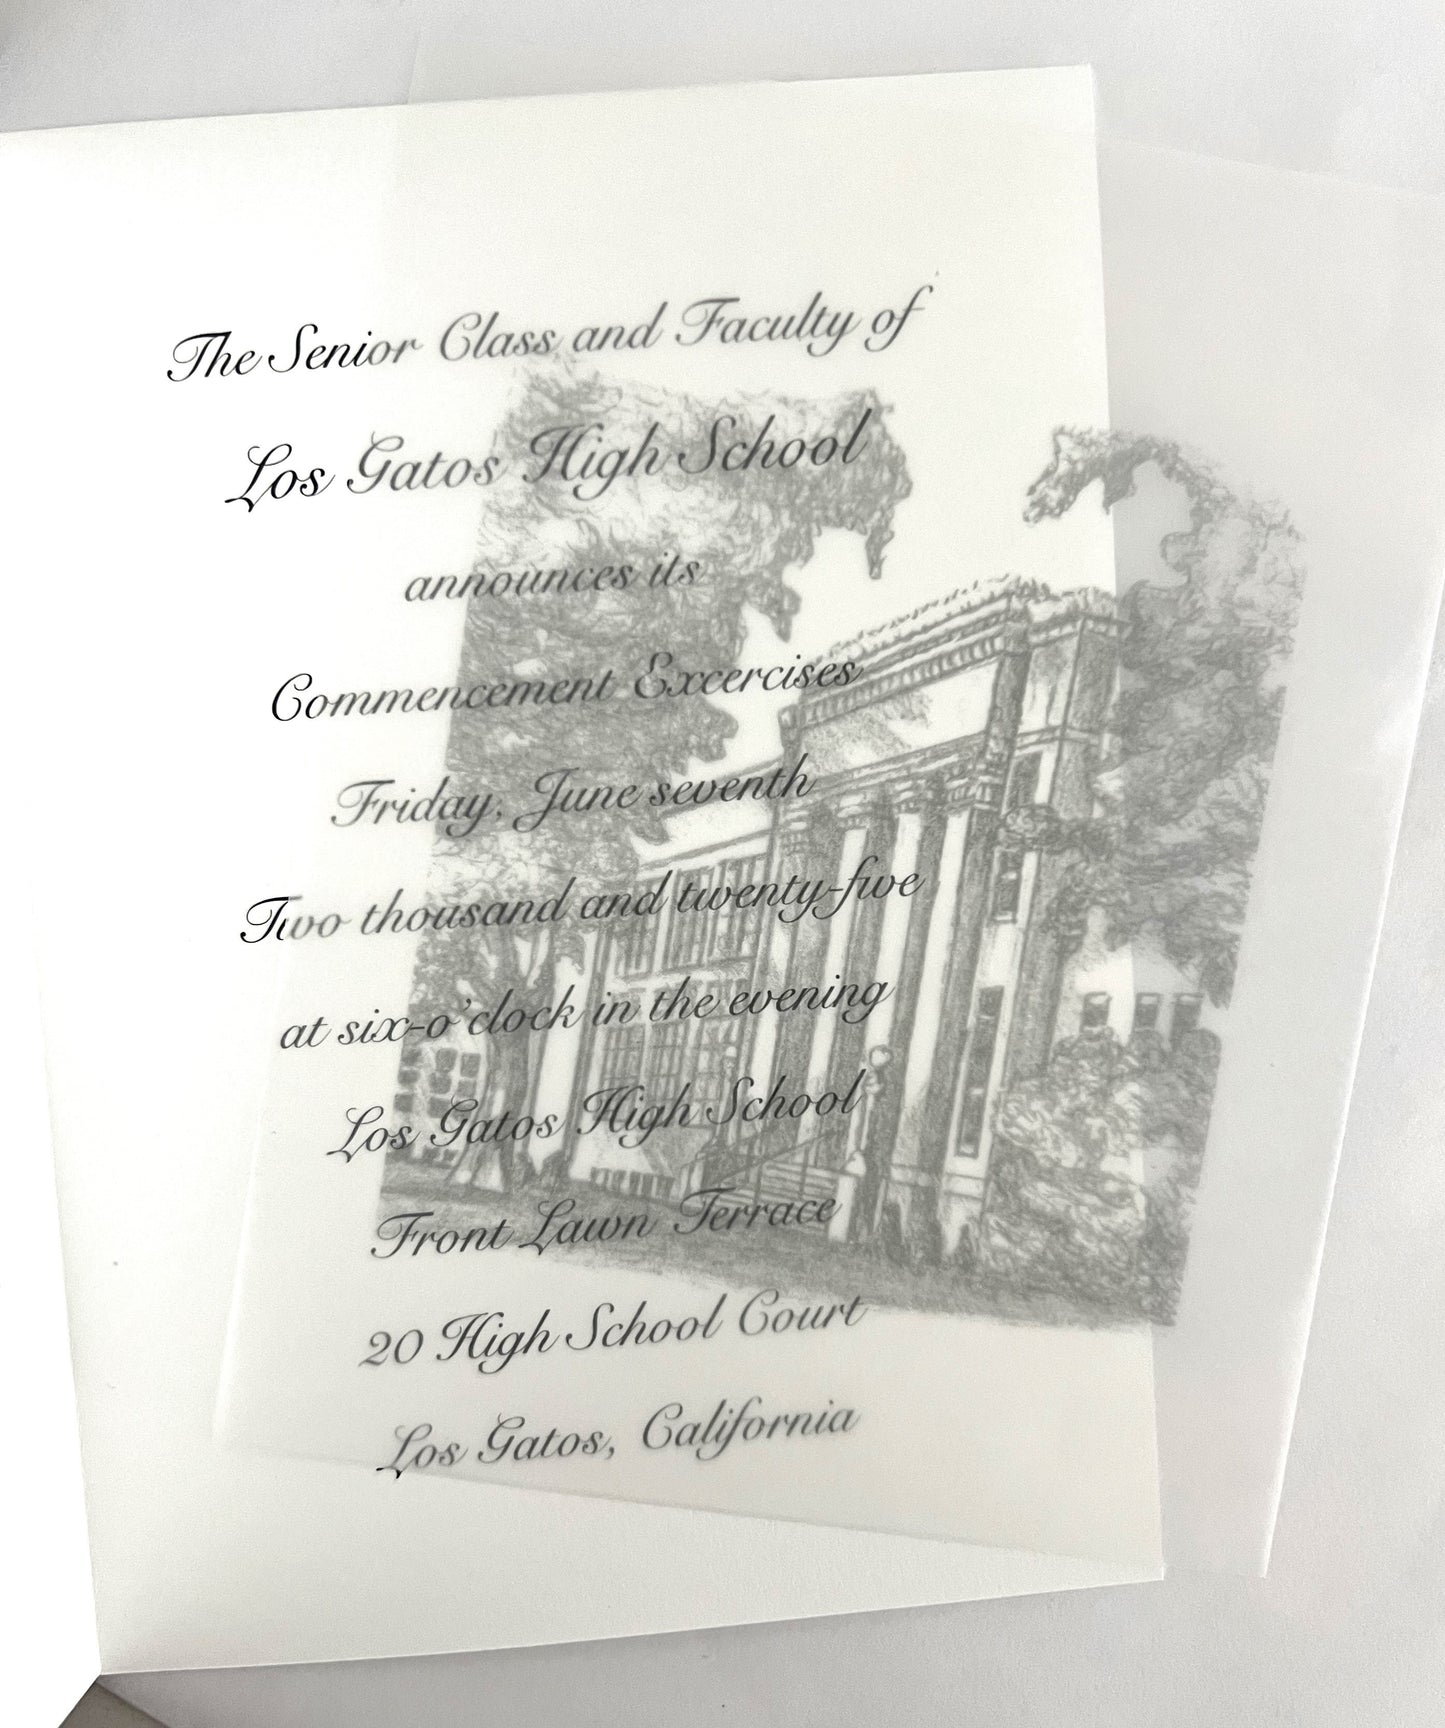 The Senior Class and Faculty of
Los Gatos High School
announces its
Commencement Excercises
Friday, June seventh
Two thousand and twenty-five
at six-o'clock in the evening
Los Gatos High School
Front Lawn Terrace
20 High School Court
Los Gatos, California